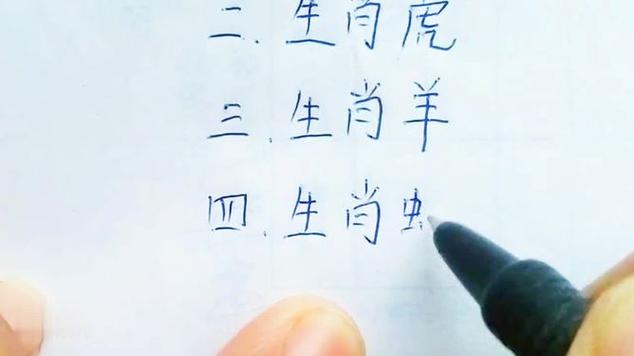 二、生肖虎
三、生肖羊
四、生肖虫